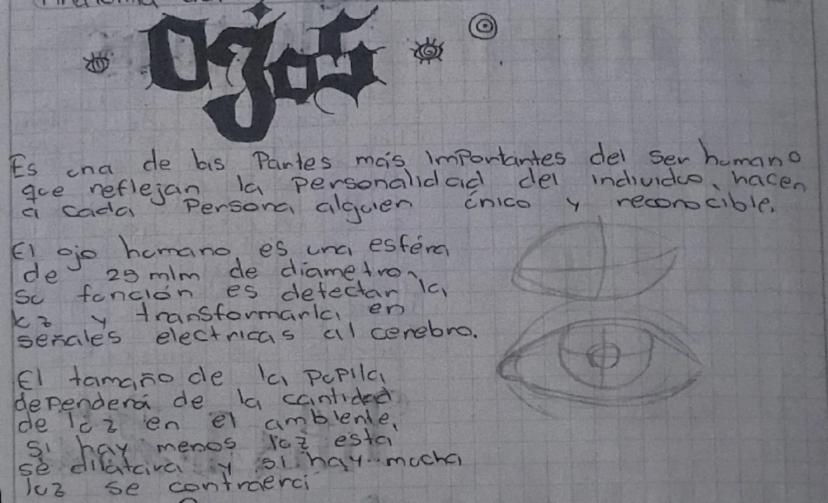 Ojos
Es una de las Partes más importantes del ser humano
que reflejan la Personalidad del individuo, hacen
a cada Persona alguien único y reconocible.
El ojo humano es una esféra
de 25 mlm de diametro,
su función es detectar la
luz y transformarla en
señales electricas al cerebro.
El tamaño de la PuPila
dependerá de la cantidad
de luz en el ambiente,
si hay menos luz esta
se dilatara y si hay mucha
luz se contraerá